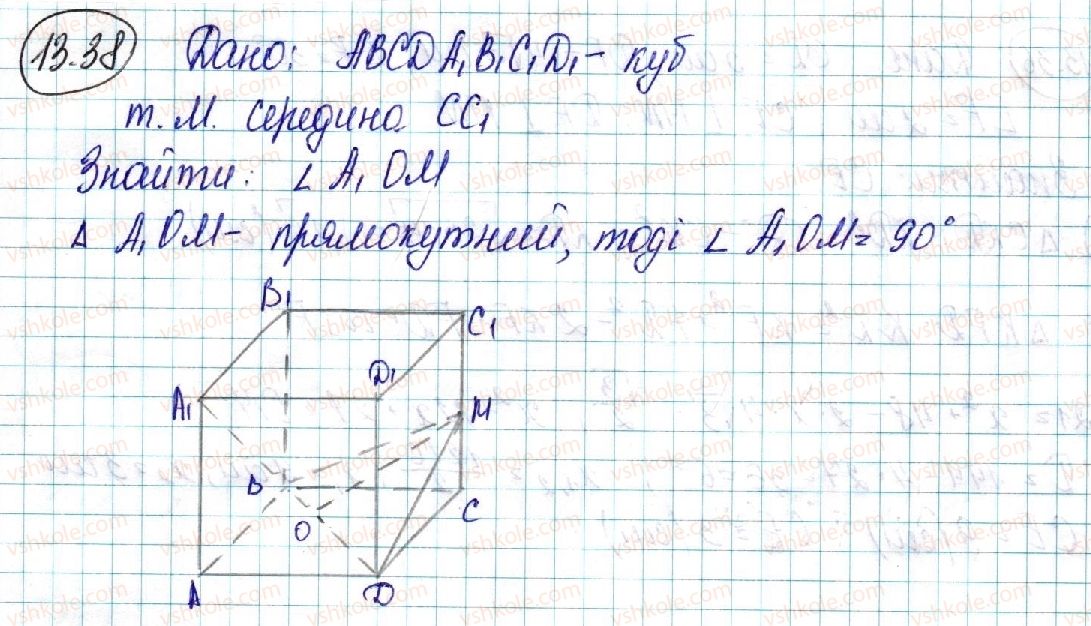 13.38 Дано: ABCDA₁B₁C₁D₁ - куб
т. М. середина CC₁
Знайти: ∠ A₁OM
Δ A₁OM - прямокутний, тоді ∠ A₁OM = 90°
B₁
C₁
D₁
A₁
M
B
C
O
A
D
vshkole.com